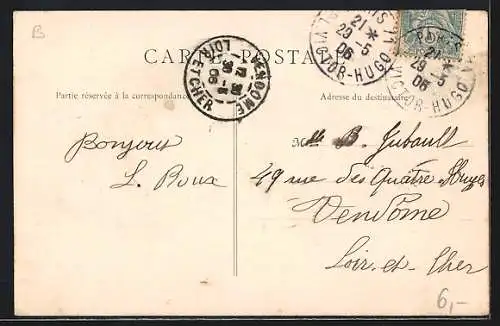 B
CARTE POSTALE
PARIS 11
21 *
29 -5
06
Av VICTOR-HUGO
PARIS 11
21 *
29 -5
06
VICTOR-HUGO
VENDOME
12 30
30 -5
06
LOIR-ET-CHER
Partie réservée à la correspondance
Adresse du destinataire
Bonjour
L. Roux
Mlle B. Jubault
49 rue des Quatre
Vendôme
Loir-et-Cher
6,-